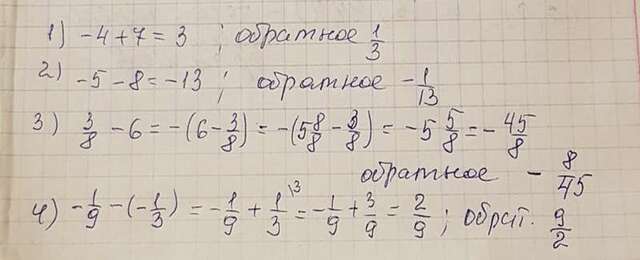 1) -4+7=3 ; обратное 1/3
2) -5-8=-13 ; обратное -1/13
3) 3/8 - 6 = -(6 - 3/8) = -(5 8/8 - 3/8) = -5 5/8 = -45/8
обратное - 8/45
4) -1/9 - (-1/3) = -1/9 + 1/3 \3 = -1/9 + 3/9 = 2/9 ; обрат. 9/2